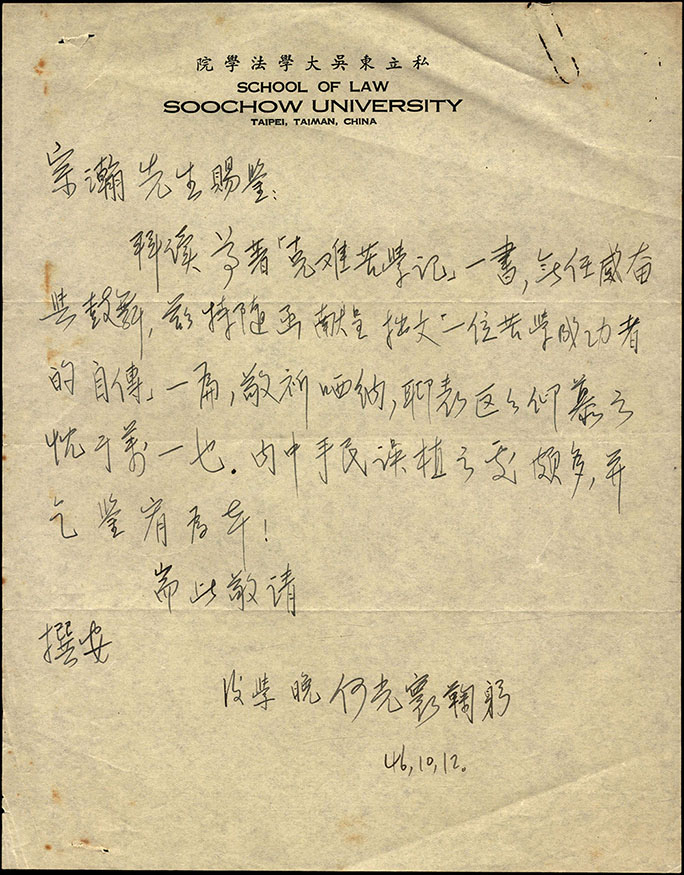 院學法學大吳東立私
SCHOOL OF LAW
SOOCHOW UNIVERSITY
TAIPEI, TAIMAN, CHINA
宗瀚先生賜鑒：
拜讀 尊著「克难苦學记」一書，無任感奋
與鼓舞，兹特隨函獻呈 拙文「一位苦學成功者
的自傳」一篇，敬祈哂纳，聊表区々仰慕之
忱于萬一也．内中手民误植之處頗多，并
乞 鑒宥為幸！
耑此敬请
撰安
後學 晚 何光寰鞠躬
46,10,12。